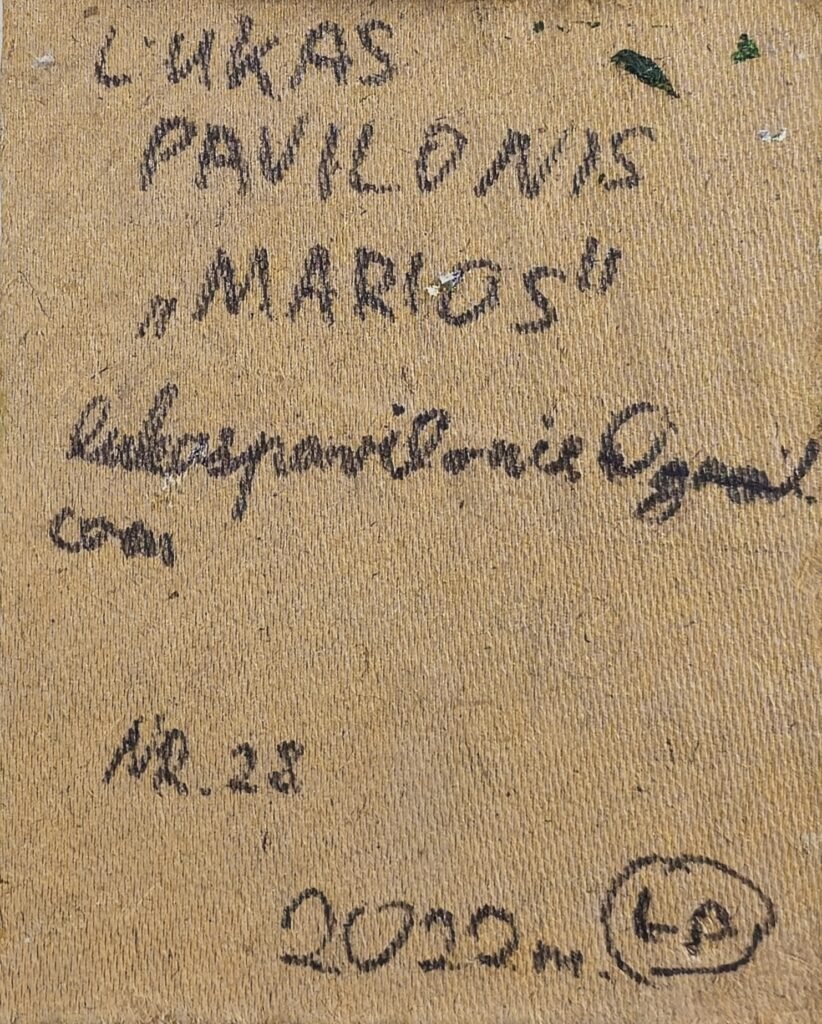 LUKAS
PAVILONIS
„MARIOS"
lukaspavilonis@gmail.
com
NR. 28
2022 m. LP